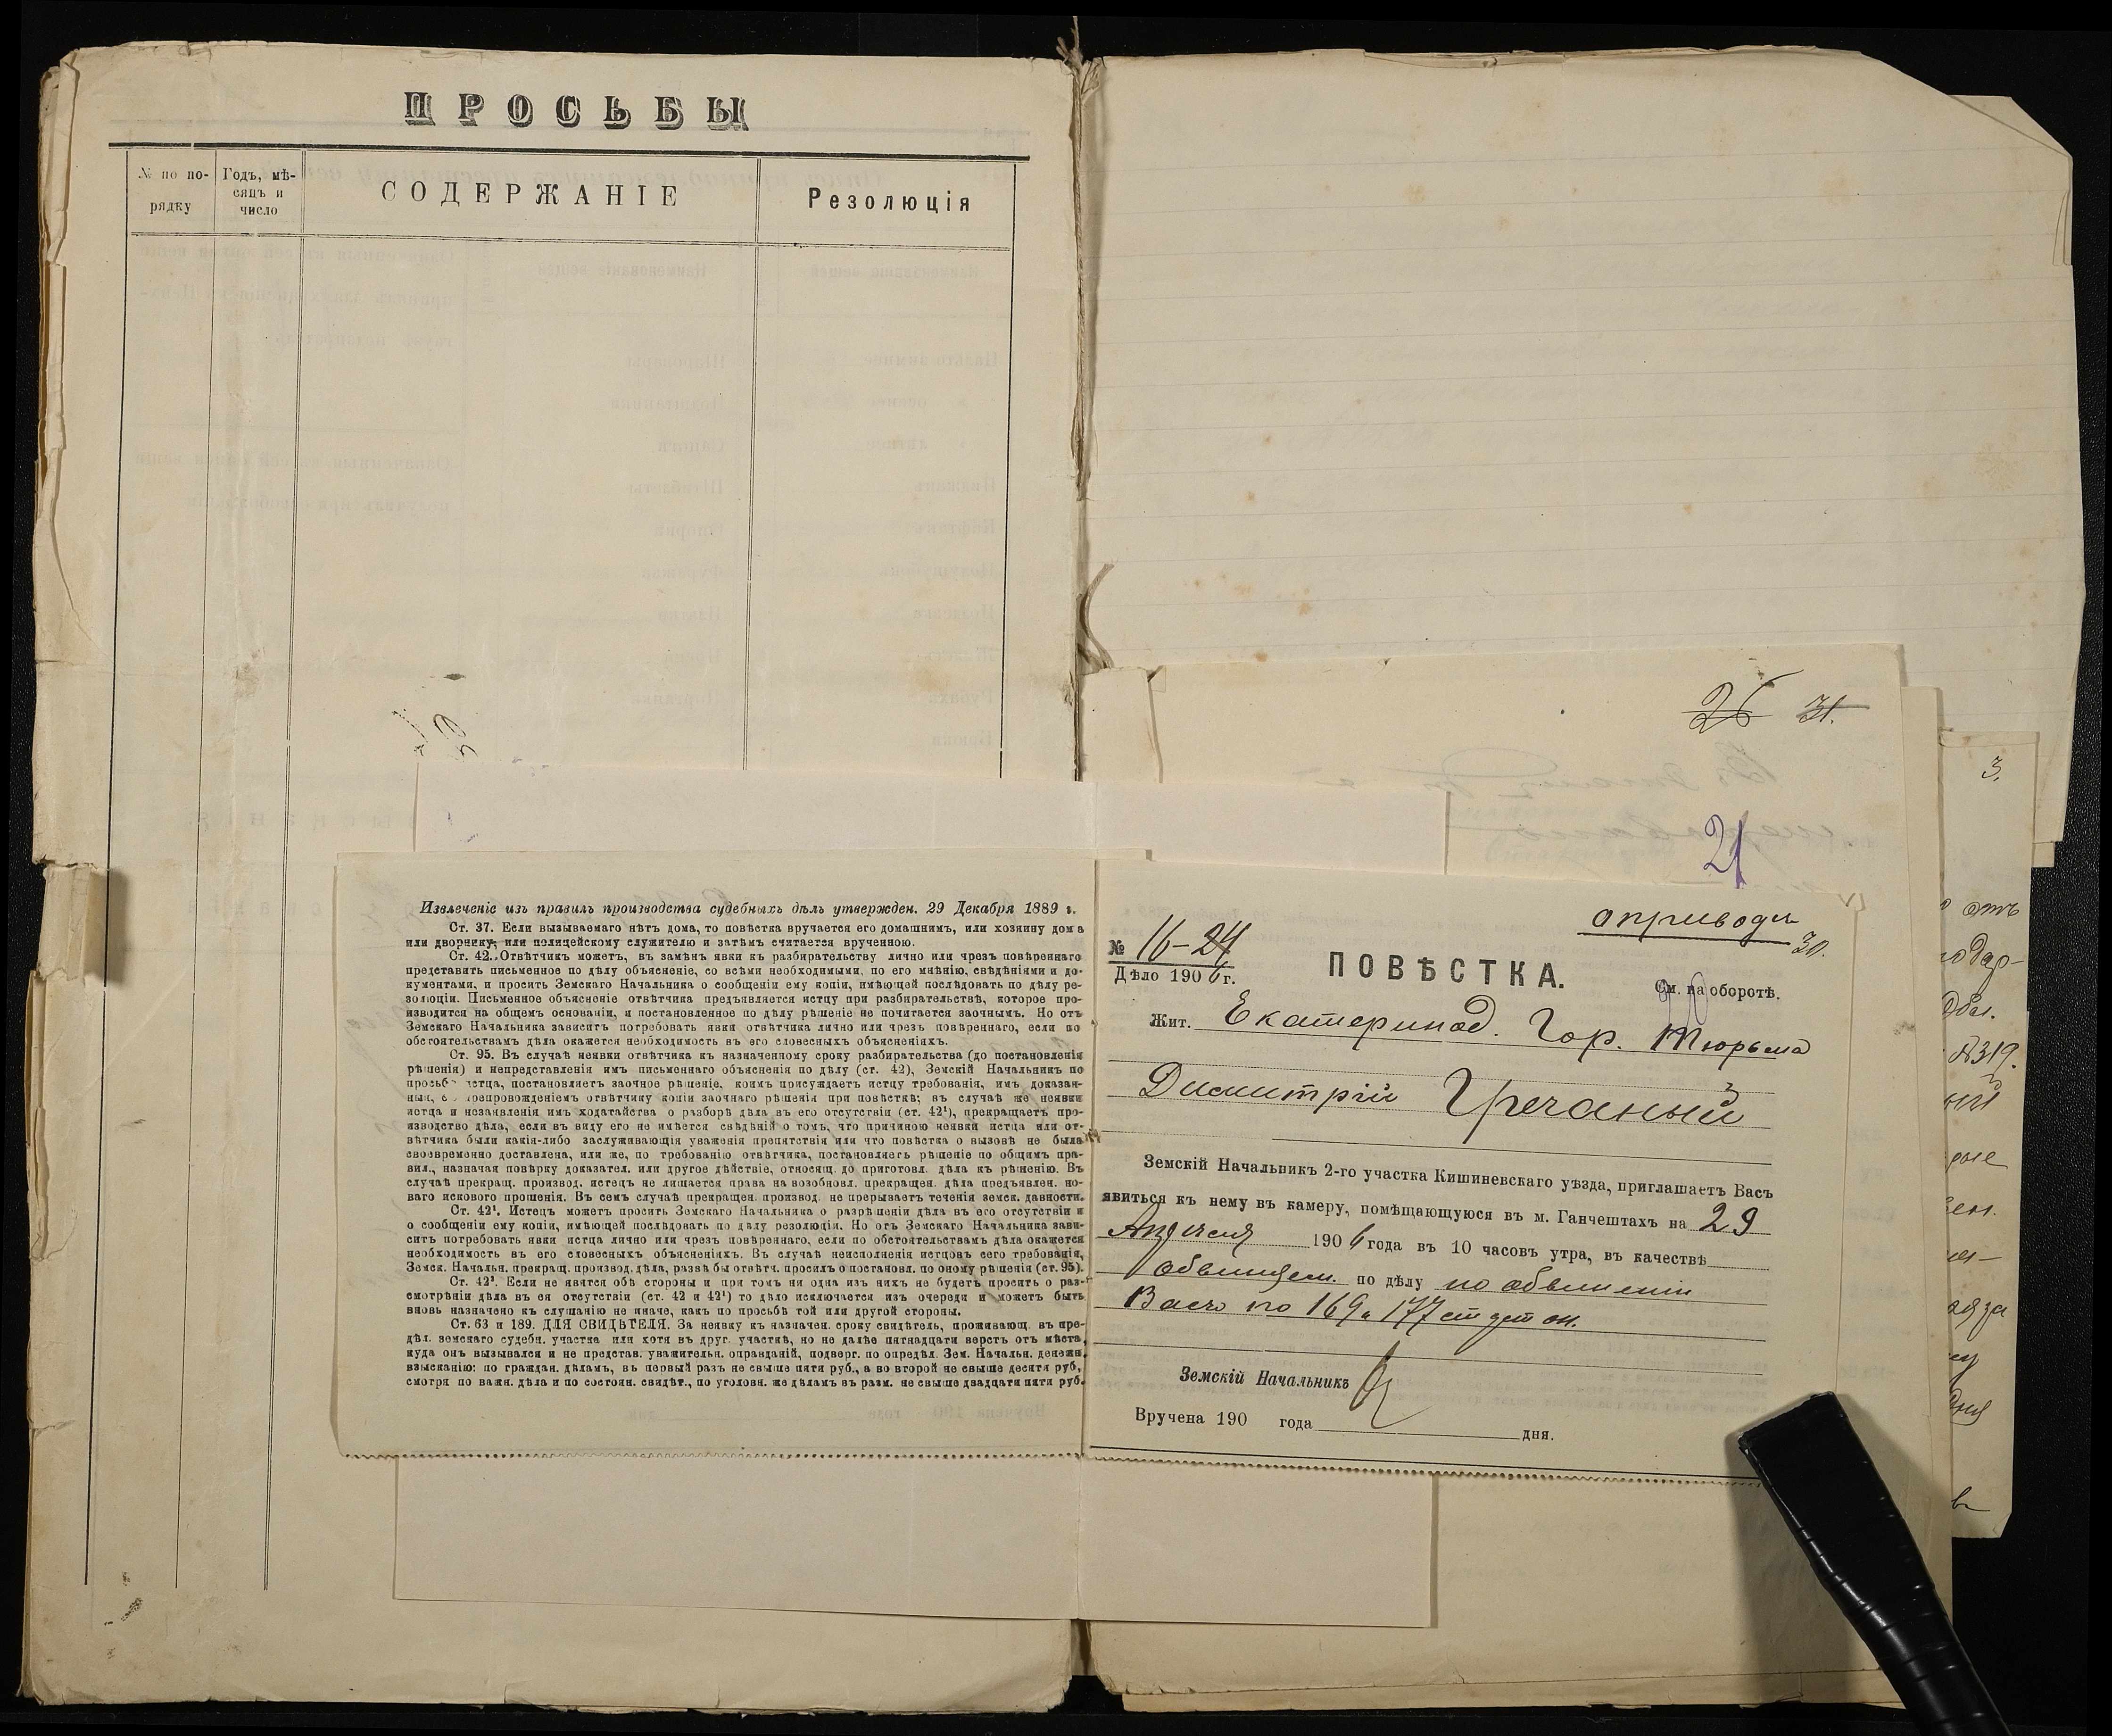 ПРОСЬБЫ
№ по по-
рядку
Годъ, мѣ-
сяцъ и
число
СОДЕРЖАНІЕ
Резолюція
26 31.
3.
21
Извлеченіе изъ правилъ производства судебныхъ дѣлъ утвержден. 29 Декабря 1889 г.
Ст. 37. Если вызываемаго нѣтъ дома, то повѣстка вручается его домашнимъ, или хозяину дома
или дворнику, или полицейскому служителю и затѣмъ считается врученною.
Ст. 42. Отвѣтчикъ можетъ, въ замѣнъ явки къ разбирательству лично или чрезъ повѣреннаго
представить письменное по дѣлу объясненіе, со всѣми необходимыми, по его мнѣнію, свѣдѣніями и до-
кументами, и просить Земскаго Начальника о сообщеніи ему копіи, имѣющей послѣдовать по дѣлу ре-
золюціи. Письменное объясненіе отвѣтчика предъявляется истцу при разбирательствѣ, которое про-
изводится на общемъ основаніи, и постановленное по дѣлу рѣшеніе не почитается заочнымъ. Но отъ
Земскаго Начальника зависитъ потребовать явки отвѣтчика лично или чрезъ повѣреннаго, если по
обстоятельствамъ дѣла окажется необходимость въ его словесныхъ объясненіяхъ.
Ст. 95. Въ случаѣ неявки отвѣтчика къ назначенному сроку разбирательства (до постановленія
рѣшенія) и непредставленія имъ письменнаго объясненія по дѣлу (ст. 42), Земскій Начальникъ по
просьб истца, постановляетъ заочное рѣшеніе, коимъ присуждаетъ истцу требованія, имъ доказан-
ныя, с репровожденіемъ отвѣтчику копіи заочнаго рѣшенія при повѣсткѣ; въ случаѣ же неявки
истца и незаявленія имъ ходатайства о разборѣ дѣла въ его отсутствіи (ст. 42¹), прекращаетъ про-
изводство дѣла, если въ виду его не имѣется свѣдѣній о томъ, что причиною неявки истца или от-
вѣтчика были какія-либо заслуживающія уваженія препятствія или что повѣстка о вызовѣ не была
своевременно доставлена, или же, по требованію отвѣтчика, постановляетъ рѣшеніе по общимъ пра-
вил., назначая повѣрку доказател. или другое дѣйствіе, относящ. до приготовл. дѣла къ рѣшенію. Въ
случаѣ прекращ. производ. истецъ не лишается права на возобновл. прекращен. дѣла предъявлен. но-
ваго исковаго прошенія. Въ семъ случаѣ прекращен. производ. не прерываетъ теченія земск. давности.
Ст. 42¹. Истецъ можетъ просить Земскаго Начальника о разрѣшеніи дѣла въ его отсутствіи и
о сообщеніи ему копіи, имѣющей послѣдовать по дѣлу резолюціи. Но отъ Земскаго Начальника зави-
ситъ потребовать явки истца лично или чрезъ повѣреннаго, если по обстоятельствамъ дѣла окажется
необходимость въ его словесныхъ объясненіяхъ. Въ случаѣ неисполненія истцовъ сего требованія,
Земск. Начальн. прекращ. производ. дѣла, развѣ бы отвѣтч. просилъ о постановл. по оному рѣшенія (ст. 95).
Ст. 42³. Если не явятся обѣ стороны и при томъ ни одна изъ нихъ не будетъ просить о раз-
смотрѣніи дѣла въ ея отсутствіи (ст. 42 и 42¹) то дѣло исключается изъ очереди и можетъ быть
вновь назначено къ слушанію не иначе, какъ по просьбѣ той или другой стороны.
Ст. 63 и 189. ДЛЯ СВИДѢТЕЛЯ. За неявку къ назначен. сроку свидѣтель, проживающ. въ пре-
дѣл. земскаго судебн. участка или хотя въ друг. участкѣ, но не далѣе пятнадцати верстъ отъ мѣста,
куда онъ вызывался и не представ. уважительн. оправданій, подверг. по опредѣл. Зем. Начальн. денежн.
взысканію: по граждан. дѣламъ, въ первый разъ не свыше пяти руб., а во второй не свыше десяти руб.,
смотря по важн. дѣла и по состоян. свидѣт., по уголовн. же дѣламъ въ разм. не свыше двадцати пяти руб.
о приводѣ
30.
№ 16-24
Дѣло 1906 г.
ПОВѢСТКА.
См. на оборотѣ.
Жит. Екатеринод. Гор. Тюрьма
Дмитрій Гречаный
Земскій Начальникъ 2-го участка Кишиневскаго уѣзда, приглашаетъ Васъ
явиться къ нему въ камеру, помѣщающуюся въ м. Ганчештахъ на 29
Апрѣля 1906 года въ 10 часовъ утра, въ качествѣ
обвиняем. по дѣлу по обвиненію
Васъ по 169 и 177 ст уст он.
Земскій Начальникъ
Вручена 190 года дня.
отъ
№319.